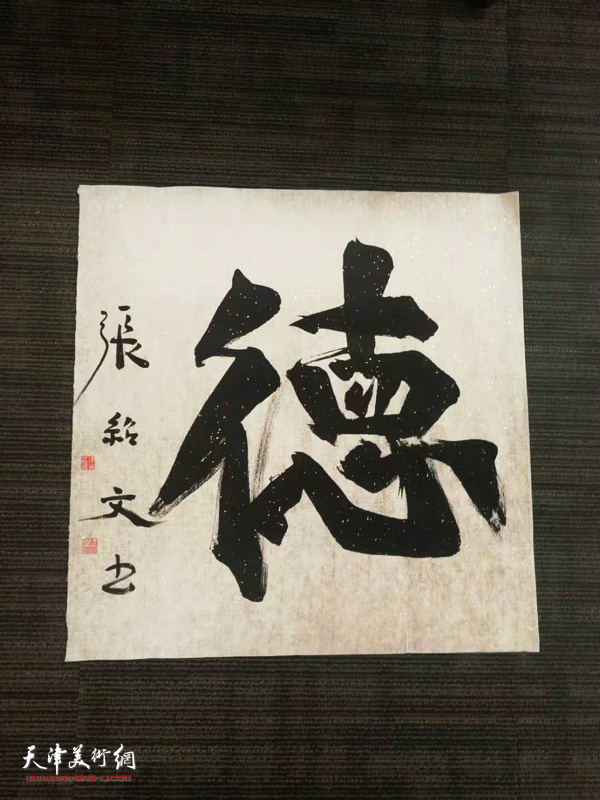 德
張紹文书
天津美術網